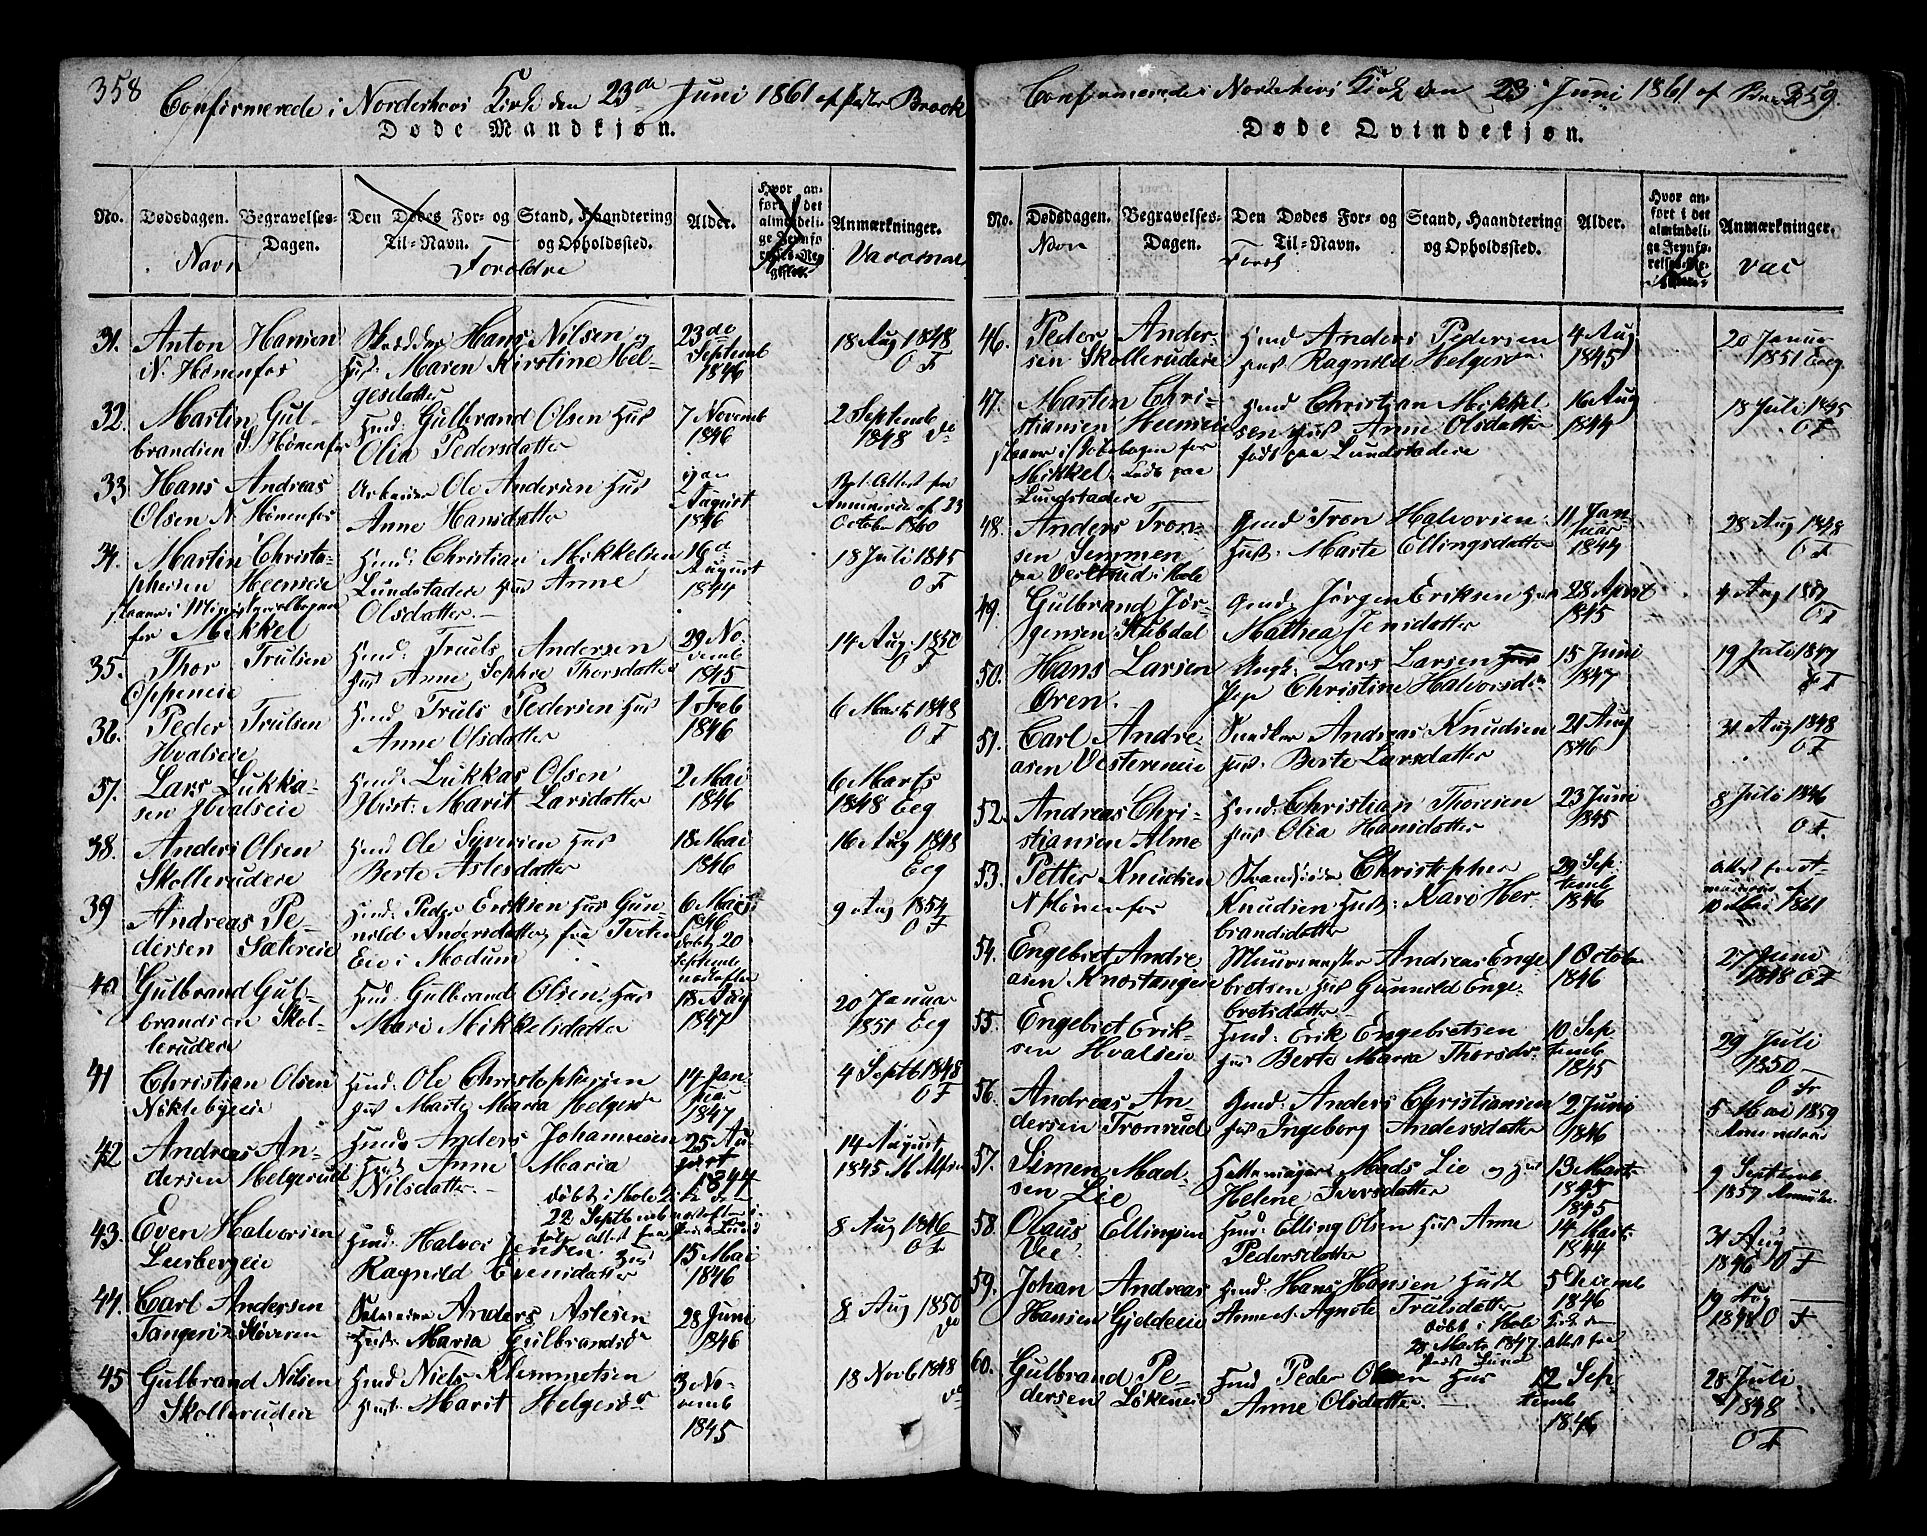 358
Confirmerede i Norderhovs Kirke den 23de Juni 1861 af Pastor Brock
Døde Mandkjøn.
No.
Dødsdagen.
Begravelses-
Dagen.
Den Dødes For- og
Til-Navn.
Stand, Haandtering
og Opholdssted.
Alder.
Hvor an-
ført i det
almindeli-
ge Jevnfø
Anmærkninger.
Navn
Forældre
31. Anton Hansen
N. Hønenfos
Hans Nilsen og
Hust. Maren Kirstine Hel-
gesdatter
23de
Septemb
1846
18 Aug 1848
O F
32. Martin Gul-
brandsen S. Hønenfos
Hmd: Gulbrand Olsen Hust
Olia Pedersdatter
7 Novemb
1846
2 Septemb
1848 do
33 Hans Andreas
Olsen N. Hønenfos
Arbeider Ole Andersen Hust
Anne Hansdatter
August
1846
October 1860
34. Martin Christo-
phersen Heensеie
for Mikkel
Hmd: Christian Mikkelsen
Lundstadeie Hust Anne
Olsdatter
16de
August
1844
18 Juli 1845
O F
35. Thor Trulsen
Oppeneie
Hmd: Truls Andersen
Hust Anne Sophie Thorsdatter
29 No-
vemb
1845
14 Aug: 1850
O F
36. Peder Trulsen
Hvalseie
Hmd Truls Pedersen Hust
Anne Olsdatter
1 Feb
1846
6 Marts 1848
O F
37. Lars Lukka-
sen Hvalseie
Hmd: Lukkas Olsen
Hust: Marit Larsdatter
2 Mai
1846
6 Marts
1848 Eeg
38. Anders Olsen
Skollerudeie
Hmd Ole Syversen Hust
Berte Aslesdatter
18 Mai
1846
16 Aug 1848
Eeg
39 Andreas Pe-
dersen Sætereie
Hmd: Peder Eriksen Hust Gun-
nild Andersdatter fra Tveten
Eie i Modum
6 Marts
1846
døbt 20
Septemb
9 Aug 1854
O F
40 Gulbrand Gul-
brandsen Skol-
lerudeie
Hmd: Gulbrand Olsen Hust
Mari Mikkelsdatter
18 Aug
1847
20 Januar
1851 Eeg
41 Christian Olsen
Niklebyeie
Hmd: Ole Christophersen
Hust Marte Maria Helgesd
14 Jan-
uar
1847
4 Septb 1848
O F
42 Andreas An-
dersen Helgerud
Hmd: Anders Johannesen
Hust Anne Maria
Nilsdatter. -
døbt i Hole Kirke den
22 Septb
25 Au-
gust
1844
14 August
1845
43. Even Halvorsen
Hmd: Halvor Jensen Hust
Ragnild Evensdatter
15 Mai
1846
8 Aug 1846
O F
44. Carl Andersen
Tangen i S. Høveren
Anders Aslesen
Hust: Maria Gulbrandsd
28 Juni
1846
8 Aug 1850
do
45 Gulbrand Nilsen
Skollerudeie
Hmd Niels Klemmetsen
Hust: Marit Helgesd
3 No-
vemb
1845
18 Novb 1848
do
359.
Confirmerede i Norderhovs Kirke den 23 Juni 1861 af
Døde Qvindekjøn.
No.
Dødsdagen.
Begravelses-
Dagen.
Den Dødes For- og
Til-Navn.
Stand, Haandtering
og Opholdssted.
Alder.
Hvor an-
ført i det
almindeli-
ge Jevnfø-
Anmærkninger.
Navn
vac
46. Peder Ander-
sen Skollerudeie
Hmd Anders Pedersen
Hust Ragnild Helgesd
4 Aug
1845
20 Januar
1851 Eeg
47. Martin Chri-
stiansen Heenseie
staaer i Døbebogen for
Mikkel. Født paa
Lundstadeie
Hmd Christian Mikkel-
sen Hust Anne Olsdatter
født paa Lundstadeie
16 Aug
1844
18 Juli 1845
O F
48. Anders Tron-
sen Semmen
Hmd: Tron Halvorsen
Hust: Marte Ellingsdatter
11 Jan-
uar
1844
28 Aug 1848
O F
49. Gulbrand Jør-
gensen Kubdal
Hmd: Jørgen Eriksen Hust
Mathea Jensdatter
28 April
1845
4 Aug 1847
O F
50. Hans Larsen
Oren.
Ungk: Lars Larsen
Pige Christine Halvorsd
15 Juni
1847
19 Juli 1847
O F
51. Carl Andre-
asen Vestereneie
Snedker Andreas Knudsen
Hust: Berte Larsdatter
21 Aug
1846
31 Aug 1848
O F
52. Andreas Chri-
stiansen Alme
Hmd: Christian Thoresen
Hust Olia Hansdatter
23 Juni
1845
8 Juli 1846
O F.
53. Petter Knudsen
N Hønenfos
Christopher
Knudsen Hust: Kari Her-
brandsdatter
29 Sep-
temb
1846
1861
54. Engebret Andre-
asen Knostangeie
Muurmester Andreas Enge-
bretsen Hust Gunnild Enge-
bretsdatter
1 October
1846
27 Juni
1848 O F
55. Engebret Erik-
sen Hvalseie
Hmd: Erik Engebretsen
Hust Berte Maria Thorsd
10 Sep-
temb
1845
29 Juli
1850
O F
56. Andreas An-
dersen Tronrud
Hmd: Anders Christiansen
Hust Ingeborg Andersdatter
2 Juni
1846
5 Mai 1859
57. Simen Mad-
sen Lie
Mads Lie og Hust
Helene Iversdatter
13 Marts
1845
1845
9 Septemb
1857
58. Olaus Ellingsen
Vee
Hmd: Elling Olsen Hust Anne
Pedersdatter
14 Marts
1844
31 Aug
1846 O F
59. Johan Andreas
Hansen Gjeldeeie
Hmd: Hans Hansen Hust
Anne Agnete Trulsdatter
døbt i Hole Kirke
28 Marts 1847.
5 Decemb
1846
19 Aug
1848 O F
60. Gulbrand Pe-
dersen Løkeneie
Hmd Peder Olsen Hust
Anne Olsdatter
12 Sep-
temb
1846
28 Juli
1848
O F